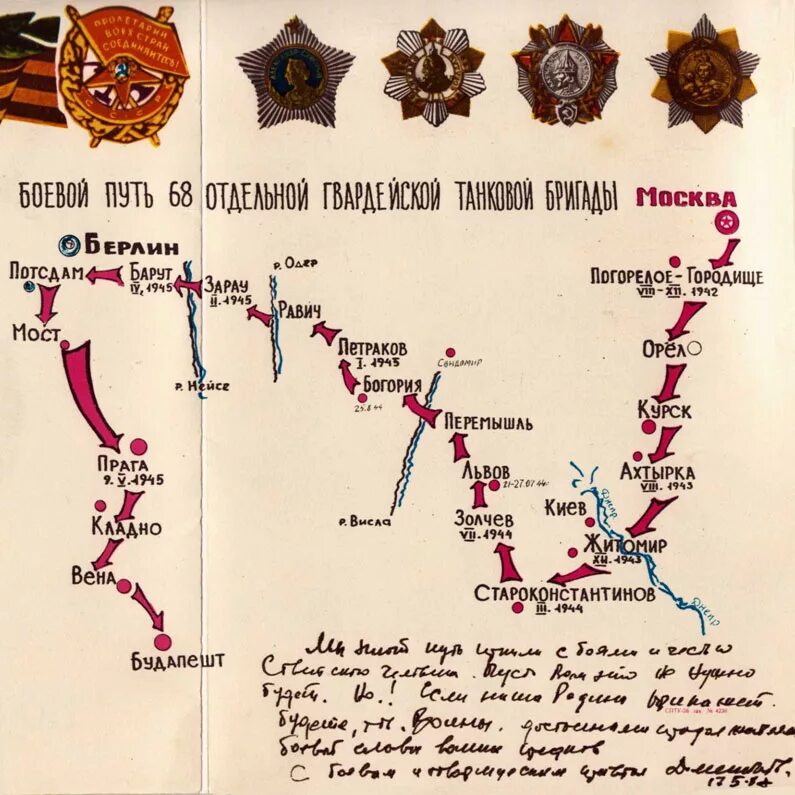 ПРОЛЕТАРИИ
ВСЕХ СТРАН
СОЕДИНЯЙТЕСЬ!
СССР
БОЕВОЙ ПУТЬ 68 ОТДЕЛЬНОЙ ГВАРДЕЙСКОЙ ТАНКОВОЙ БРИГАДЫ
МОСКВА
БЕРЛИН
ПОТСДАМ
БАРУТ
IV. 1945
ЗАРАУ
II. 1945
р. Одер
РАВИЧ
ПОГОРЕЛОЕ-ГОРОДИЩЕ
VIII-XII. 1942
МОСТ
ПЕТРАКОВ
I. 1945
Сандомир
ОРЁЛ
р. Нейсе
БОГОРИЯ
25.8.44
КУРСК
ПЕРЕМЫШЛЬ
ПРАГА
9. V. 1945
ЛЬВОВ
21-27.07.44г.
АХТЫРКА
VIII. 1943
КЛАДНО
р. Висла
ЗОЛЧЕВ
VII. 1944
КИЕВ
Днепр
ЖИТОМИР
XII. 1943
ВЕНА
СТАРОКОНСТАНТИНОВ
III. 1944
Днепр
БУДАПЕШТ
Мы этот путь прошли с боями и честью
Советского человека. Пусть Вам это не нужно
будет. Но! Если наша Родина прикажет.
СПТУ-56 зак. № 4236
будете, Воины, достойными
боевой славы ваших
С боевым и гвардейским приветом
17 5